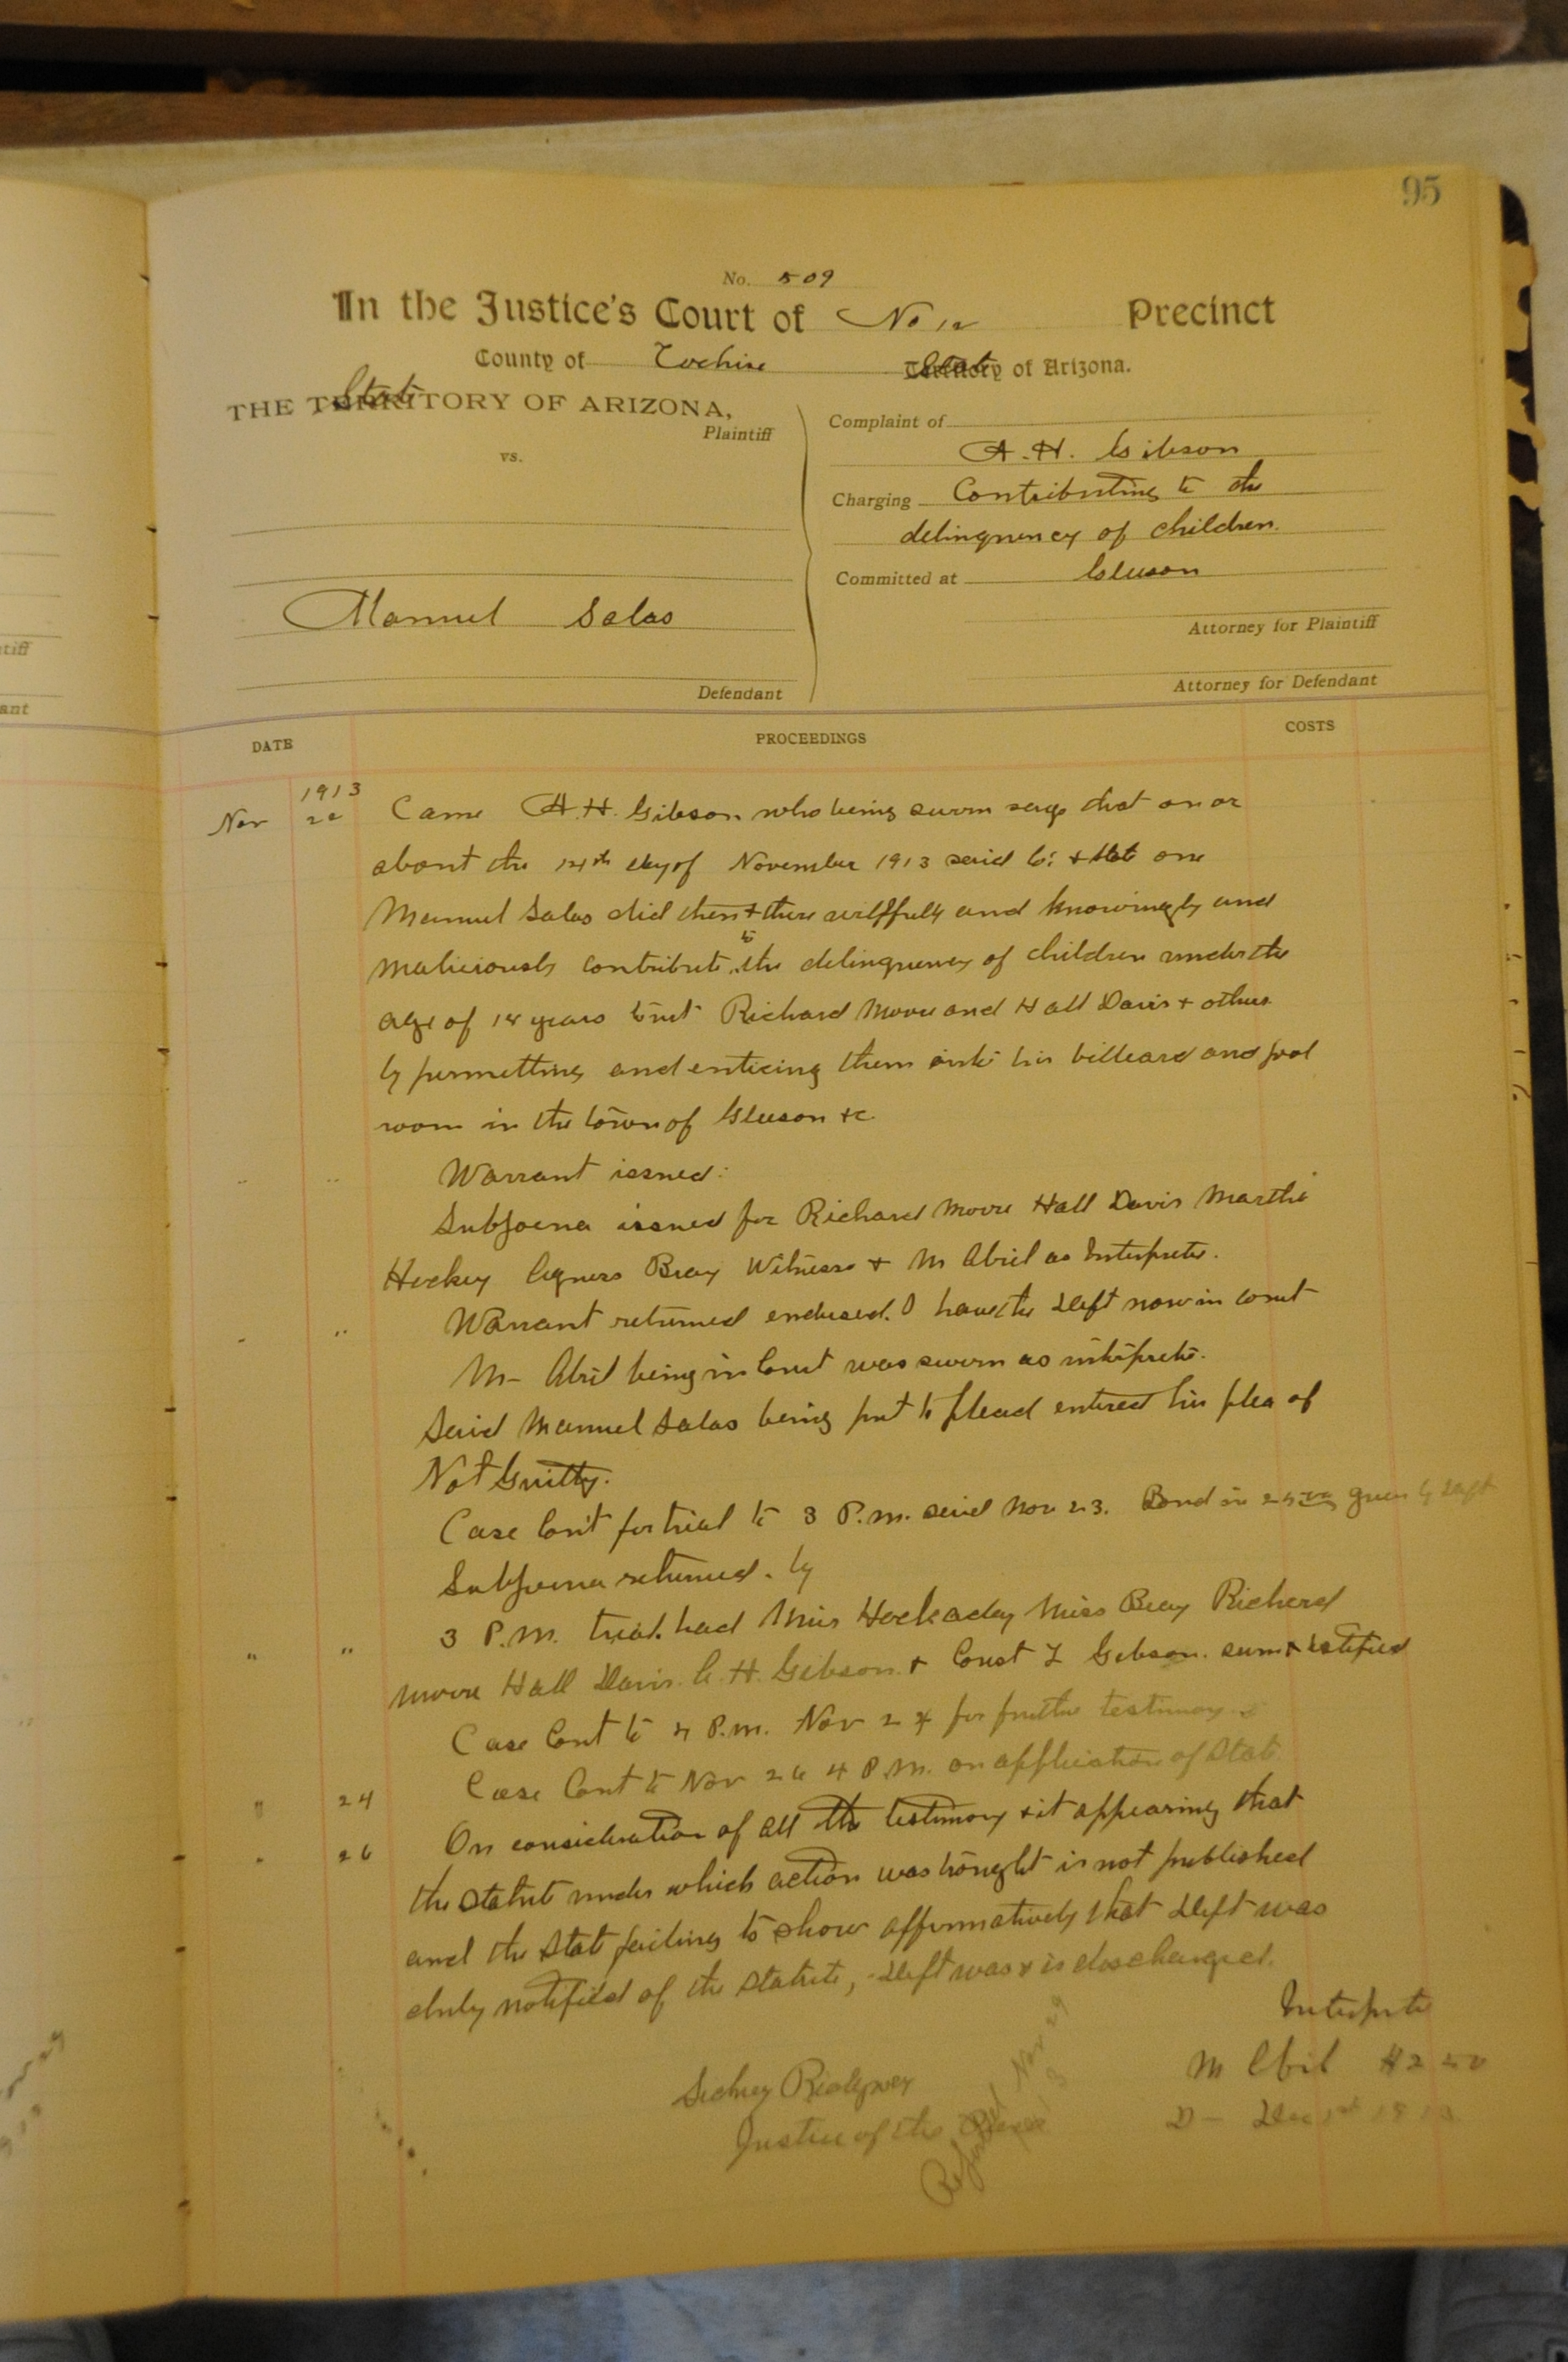 95
No. 509
In the Justice's Court of No 12 Precinct
County of Cochise State of Arizona.
State
THE TERRITORY OF ARIZONA,
Plaintiff
vs.
Manuel Salas
Defendant
Complaint of
A. H. Gibson
Charging Contributing to the
delinquency of children.
Committed at Gleeson
Attorney for Plaintiff
Attorney for Defendant
tiff
ant
DATE PROCEEDINGS COSTS
1913
Nov Came A. H. Gibson who being sworn says that on or
about the 14th day of November 1913 said Co: & State one
Manuel Salas did then & there willfully and knowingly and
maliciously contribute to the delinquency of children under the
age of 18 years to wit Richard Moore and Hall Davis & others
by permitting and enticing them into his billeard and pool
room in the town of Gleeson &c.
Warrant issued:
Subpoena issued for Richard Moore Hall Davis Martha
Agness Bray Witness & M Abril as Interpreter.
" Warrant returned endorsed. I have the Deft now in court
M Abril being in Court was sworn as interpreter.
Said Manuel Salas being put to plead entered his plea of
Not Guilty.
Case Con't for trial to 3 P.m. said Nov 23. Bond in given by Deft
Subpoena returned. by
" " 3 P.M. trial had Miss Hockaday Miss Bray Richard
Moore Hall Davis. A. H. Gibson & Const Gibson. sworn & testified
Case Cont to 4 P.m. Nov 24 for further testimony.
" 24 Case Cont to Nov 26 4 P.M. on application of State
26 On consideration of all the testimony & it appearing that
the statute under which action was brought is not published
and the State failing to show affirmatively that Deft was
duly notified of the statute, Deft was & is discharged.
Interpreter
Sidney Ridgway M Abril $2 50
Justice of the Peace Dec 1st 1913
Nov 29